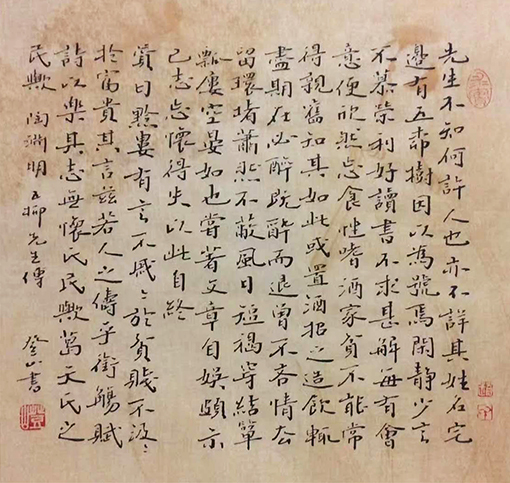 先生不知何許人也亦不詳其姓名宅
邊有五柳樹因以為號焉閑靜少言
不慕榮利好讀書不求甚解每有會
意便欣然忘食性嗜酒家貧不能常
得親舊知其如此或置酒招之造飲輒
盡期在必醉既醉而退曾不吝情去
留環堵蕭然不蔽風日短褐穿結簞
瓢屢空晏如也嘗著文章自娛頗示
己志忘懷得失以此自終
贊曰黔婁有言不戚々於貧賤不汲々
於富貴其言茲若人之儔乎銜觴賦
詩以樂其志無懷氏民歟葛天氏之
民歟 陶淵明五柳先生傳 書